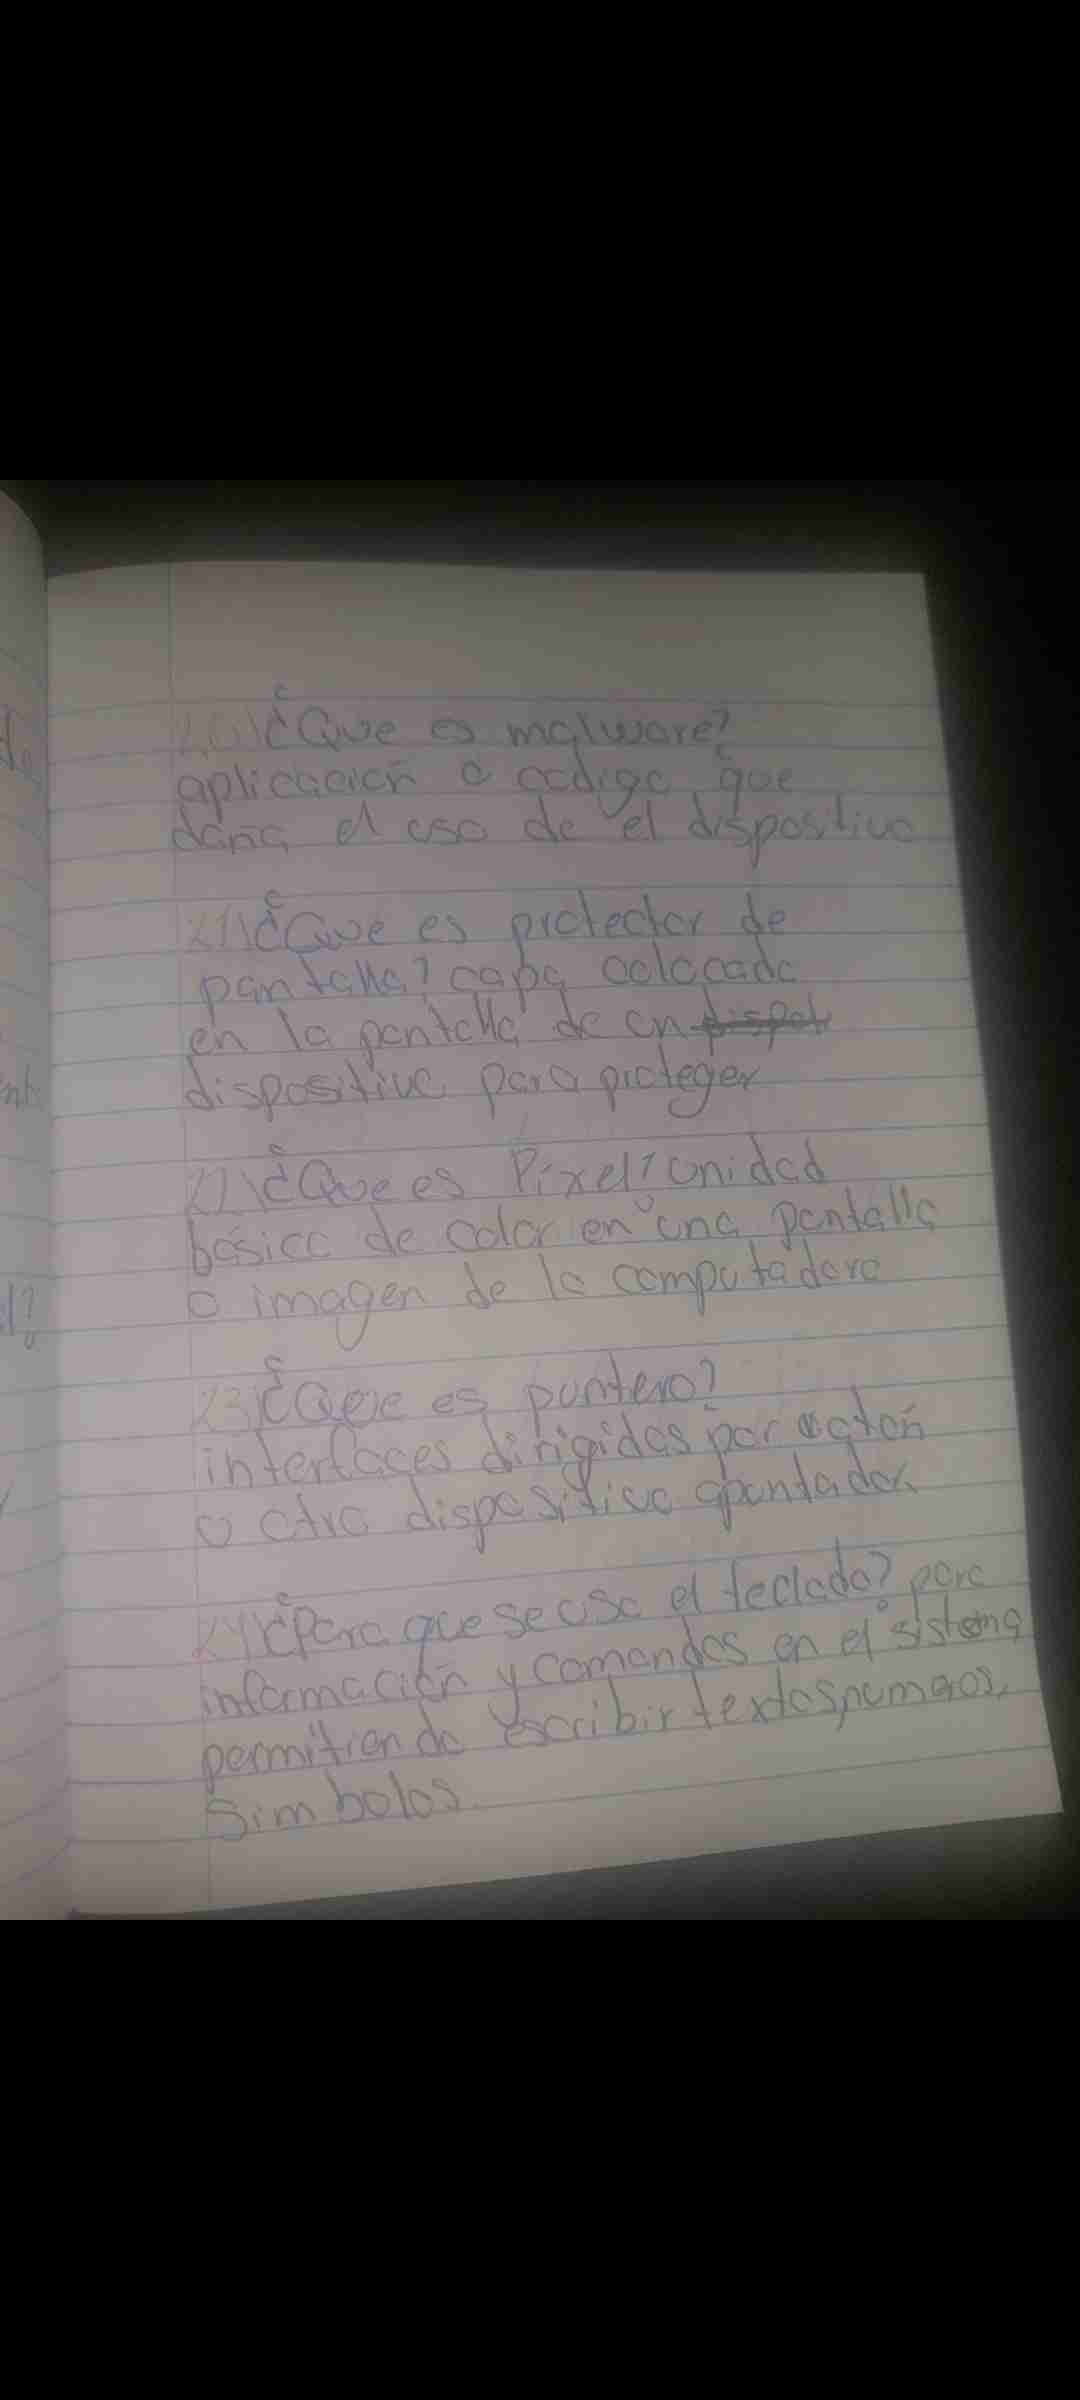 20) ¿Que es malware?
aplicación o codigo que
daña el uso de el dispositivo
21) ¿Que es protector de
pantalla? capa colocada
en la pantalla de un
dispositivo para proteger
22) ¿Que es Pixel? Unidad
básica de color en una pantalla
o imagen de la computadora
23) ¿Que es puntero?
interfaces dirigidas por ratón
o otro dispositivo apuntador.
24) ¿Para que se usa el teclado? para
información y comandos en el sistema
permitiendo escribir textos, numeros,
Simbolos.